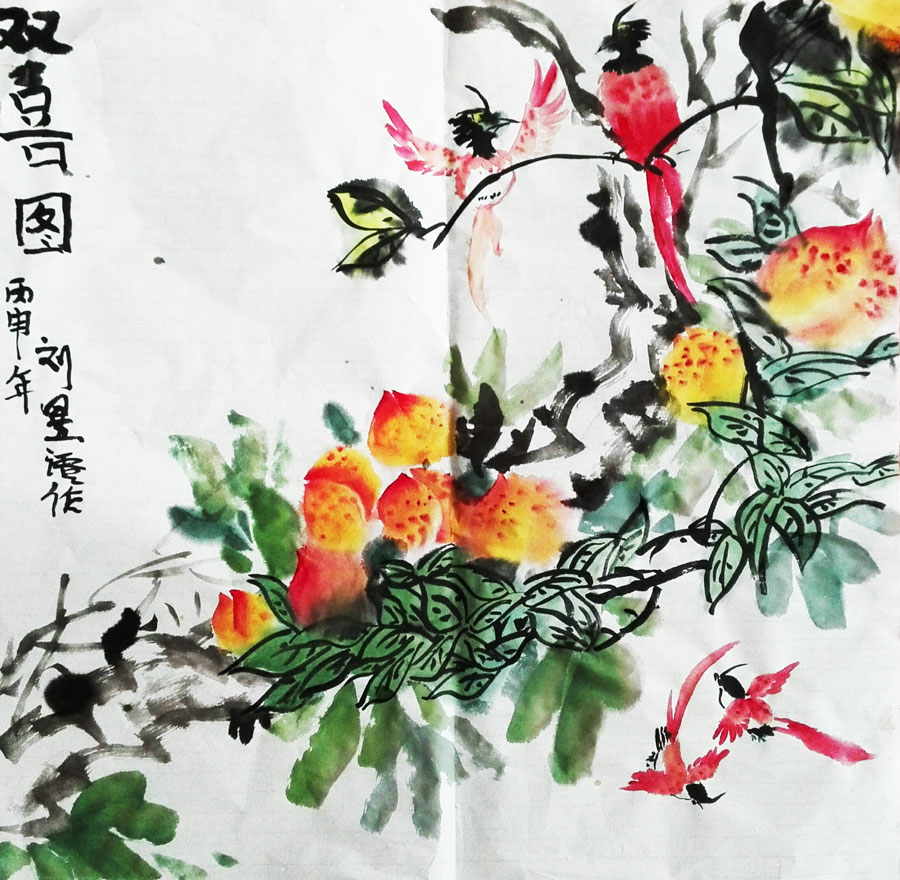 双喜图
丙申年
刘作